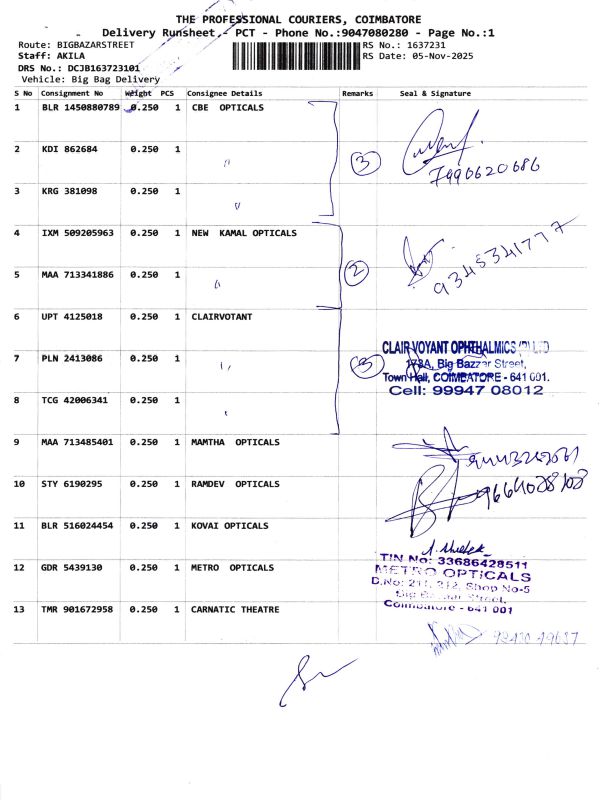 THE PROFESSIONAL COURIERS, COIMBATORE
Delivery Runsheet,- PCT - Phone No.:9047080280 - Page No.:1
Route: BIGBAZARSTREET
RS No.: 1637231
Staff: AKILA
RS Date: 05-Nov-2025
DRS No.: DCJB163723101
Vehicle: Big Bag Delivery
S No Consignment No Weight PCS Consignee Details Remarks Seal & Signature
1 BLR 1450880789 0.250 1 CBE OPTICALS
2 KDI 862684 0.250 1 " 3
7990620686
3 KRG 381098 0.250 1 "
4 IXM 509205963 0.250 1 NEW KAMAL OPTICALS
9345341777
5 MAA 713341886 0.250 1 " 2
6 UPT 4125018 0.250 1 CLAIRVOTANT
CLAIR VOYANT OPHTHALMICS (P) LTD
7 PLN 2413086 0.250 1 " 3 173A, Big Bazzar Street,
Town Hall, COIMBATORE - 641 001.
Cell: 99947 08012
8 TCG 42006341 0.250 1 "
9 MAA 713485401 0.250 1 MAMTHA OPTICALS
10 STY 6190295 0.250 1 RAMDEV OPTICALS
9664028108
11 BLR 516024454 0.250 1 KOVAI OPTICALS
TIN No: 33686428511
12 GDR 5439130 0.250 1 METRO OPTICALS METRO OPTICALS
D.No: 211, 212, Shop No-5
Big Bazaar Street,
Coimbatore - 641 001
13 TMR 901672958 0.250 1 CARNATIC THEATRE